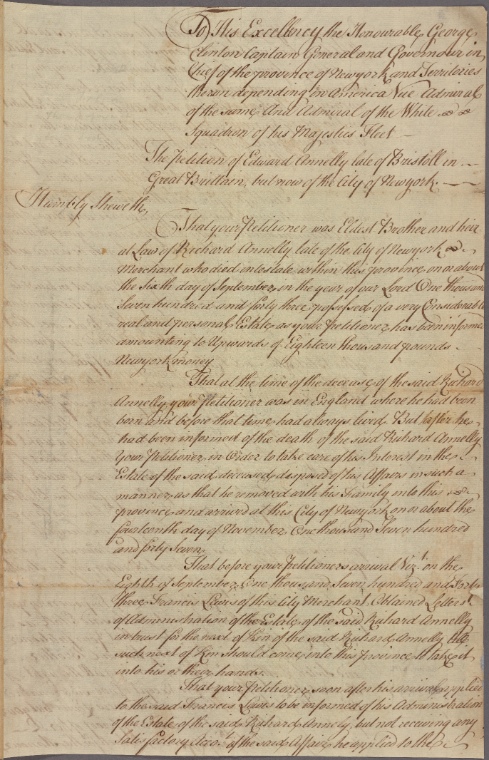 To His Excellency the Honourable George
Clinton Captain General and Governour in
Chief of the province of Newyork and Territories
thereon depending in America Vice Admiral
of the same And Admiral of the White
Squadron of his Majesties Fleet
The Petition of Edward Annelly late of Bristoll in
Great Brittain, but now of the City of Newyork.
Humbly Sheweth,
That your Petitioner was Eldest Brother and heir
at Law of Richard Annelly late of the City of Newyork
Merchant who died intestate within this province on or about
the Sixth day of September, in the year of our Lord One thousand
Seven hundred and forty three possessed of a very Considerable
real and personal Estate as your Petitioner has been informed
amounting to Upwards of Eighteen thousand pounds
Newyork money
That at the time of the decease of the said Richard
Annelly your Petitioner was in England where he had been
born and before that time had always lived But after he
had been informed of the death of the said Richard Annelly
Your Petitioner in Order to take care of his Interest in the
Estate of the said deceased disposed of his Affairs in such a
manner as that he removed with his Family into this
province and arrived at this City of Newyork on or about the
fourteenth day of November, One thousand Seven hundred
and forty Seven
That before your Petitioners arrival Vizt. on the
Eighth of September, One thousand Seven hundred and forty
three Francis Lewis of this City Merchant Obtained Letters
of Administration of the Estate of the said Richard Annelly
in trust for the next of Kin of the said Richard Annelly till
such next of Kin should come into this Province to take it
into his or their hands.
That your Petitioner soon after his arrival applied
to the said Francis Lewis to be informed of his Administration
of the Estate of the said Richard Annely, but not receiving any
Satisfactory Acco.t of the said Affair, he applied to the